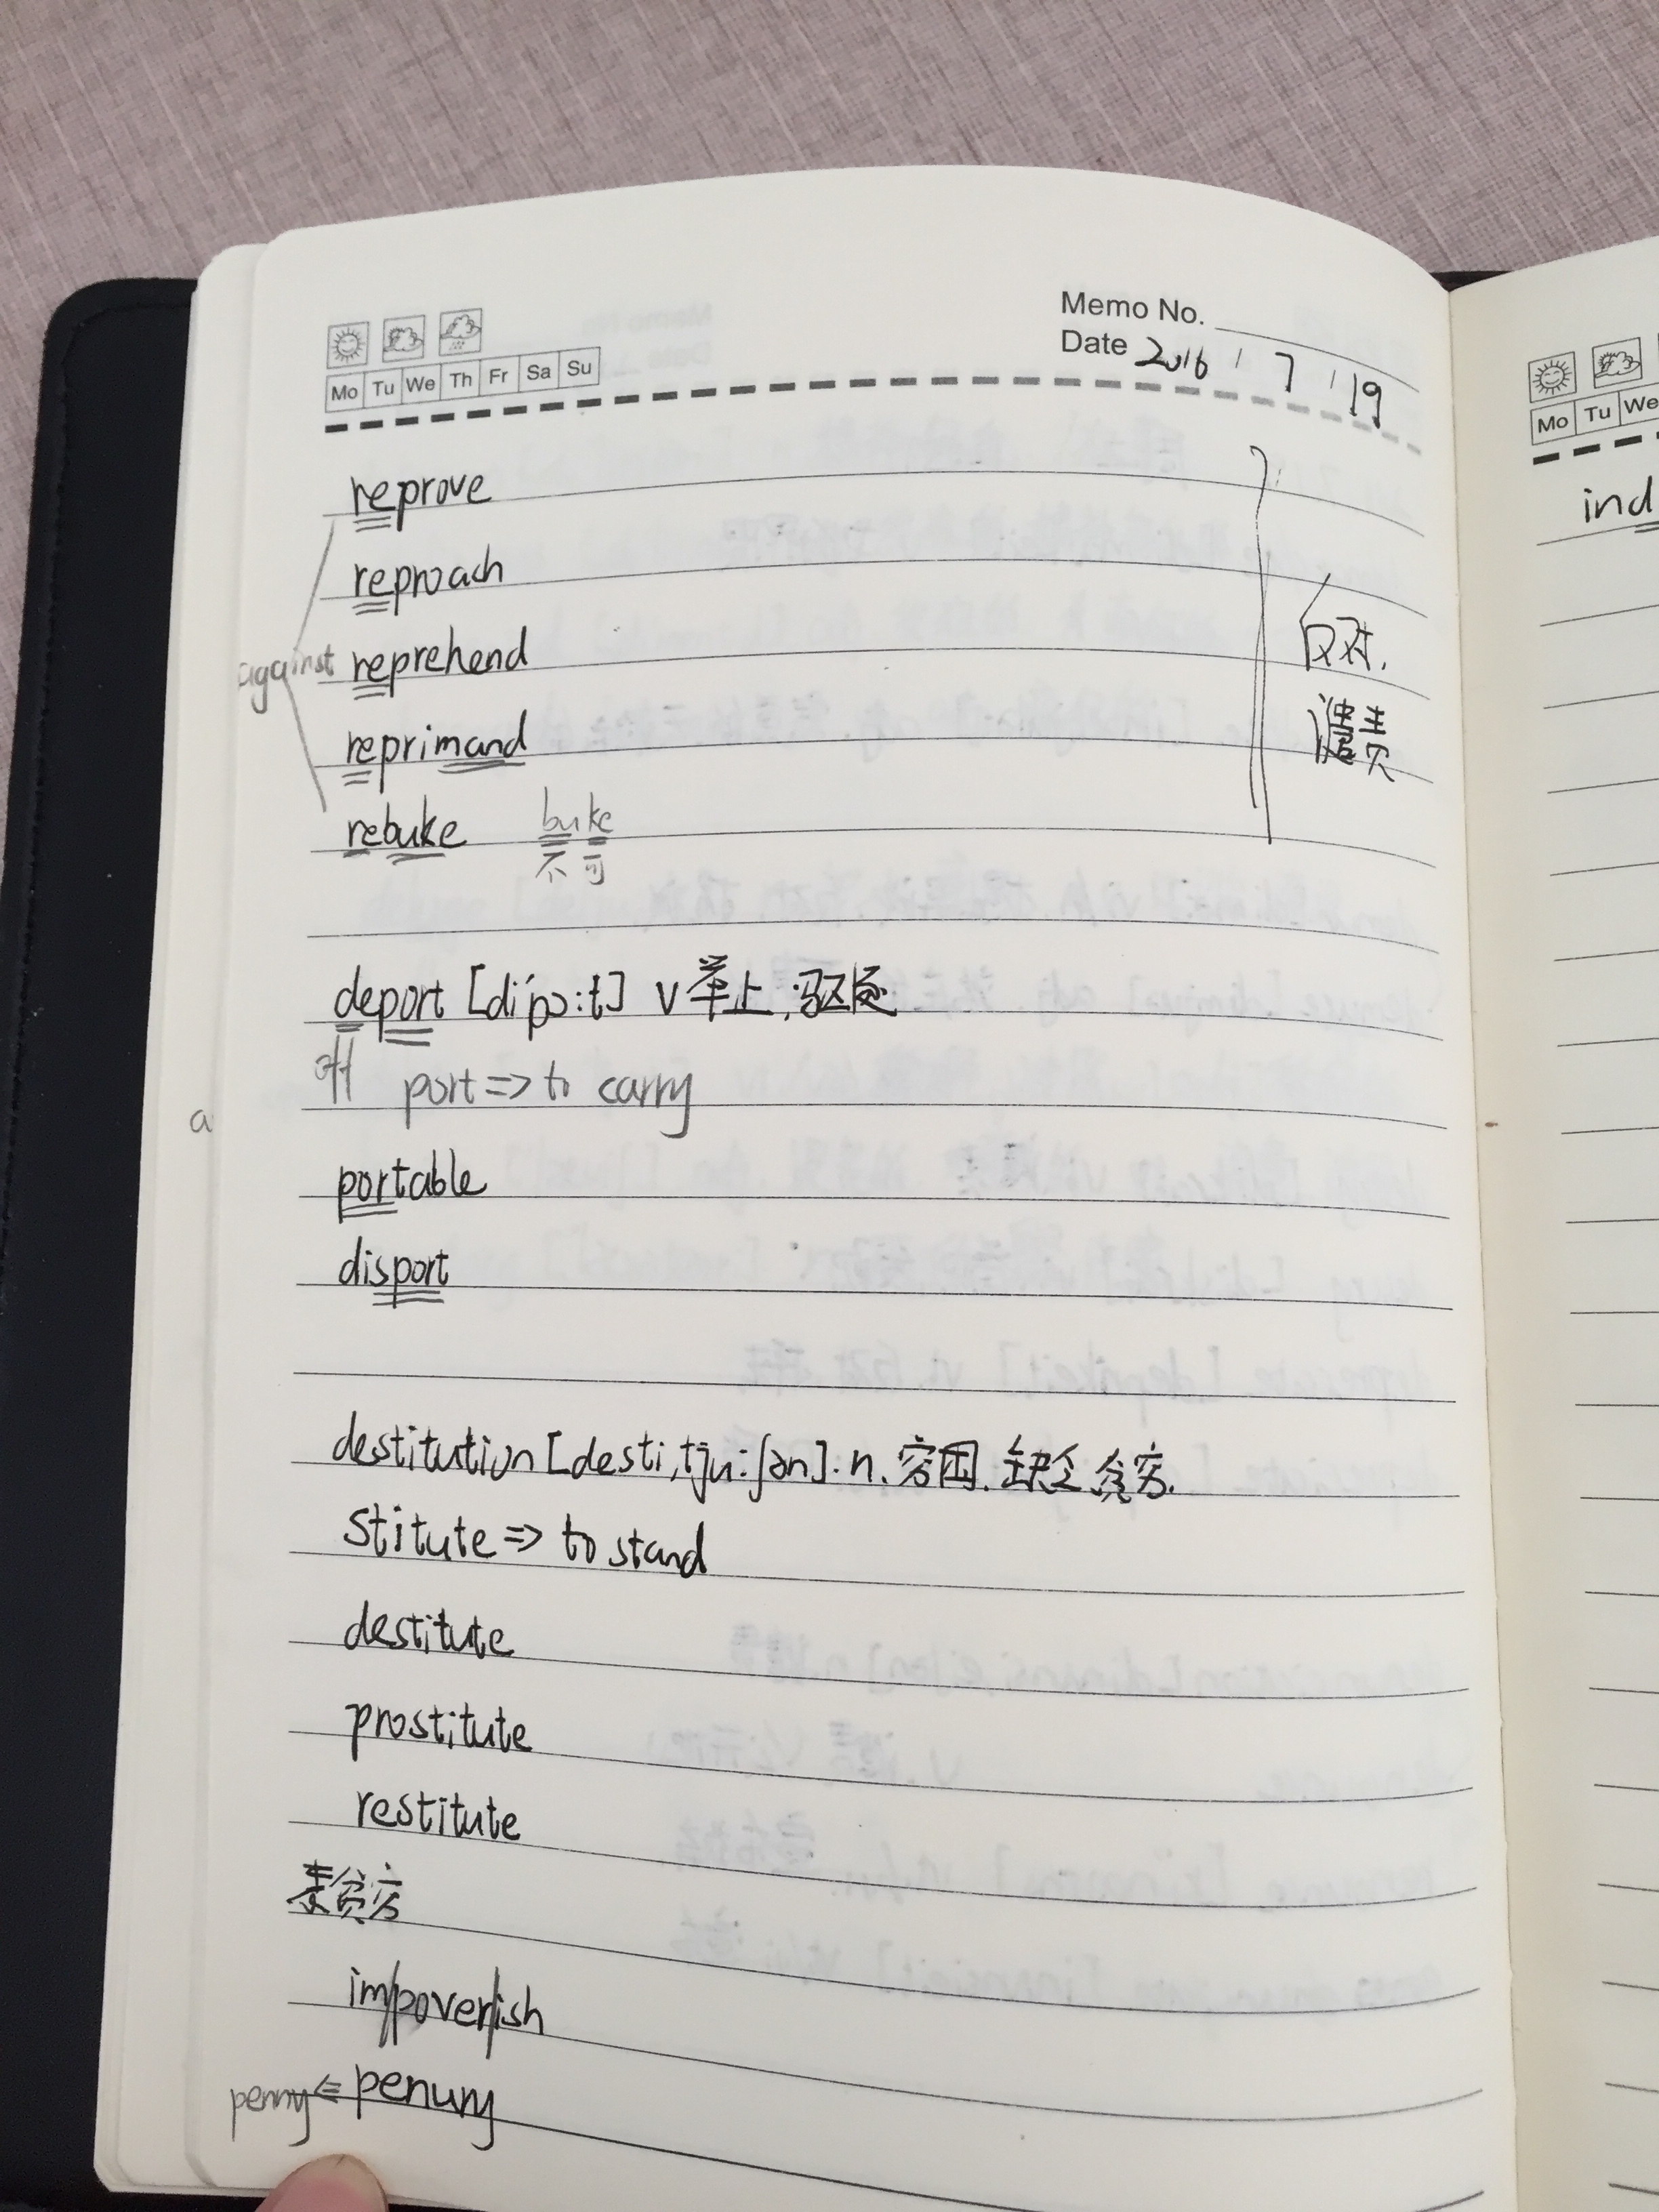 Memo No.
Mo Tu We Th Fr Sa Su
Date 2016 / 7 / 19
reprove
reproach
against reprehend
反对.
谴责
reprimand
rebuke buke
不可
deport [di'pɔ:t] v 举止,驱逐
off port => to carry
a
portable
disport
destitution [desti,tju:ʃən]. n. 穷困. 缺乏 贫穷.
stitute => to stand
destitute
prostitute
restitute
表贫穷
im/pover/ish
penny <= penury
Mo Tu We
ind